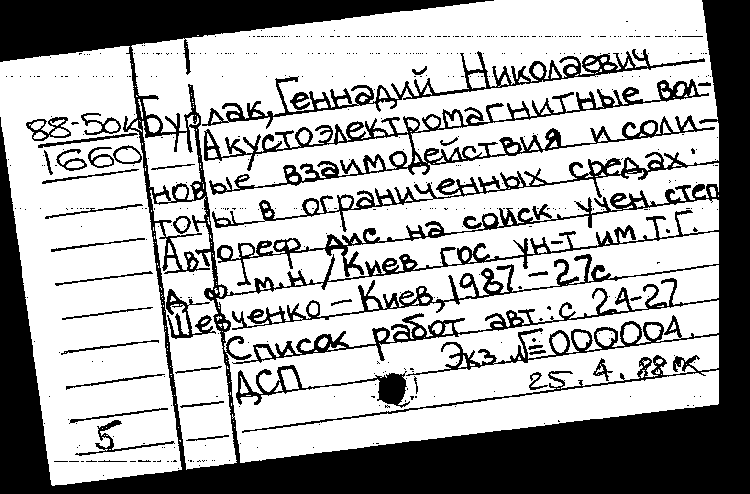 88-50к
1660
Бурлак, Геннадий Николаевич
Акустоэлектромагнитные вол-
новые взаимодействия и соли-
тоны в ограниченных средах:
Автореф. дис. на соиск. учен. степ
д. ф.-м.н. / Киев. гос. ун-т им. Т.Г.
Шевченко. – Киев, 1987. – 27с.
Список работ авт.: с. 24-27
Экз. №000004.
ДСП
25. 4. 88
5